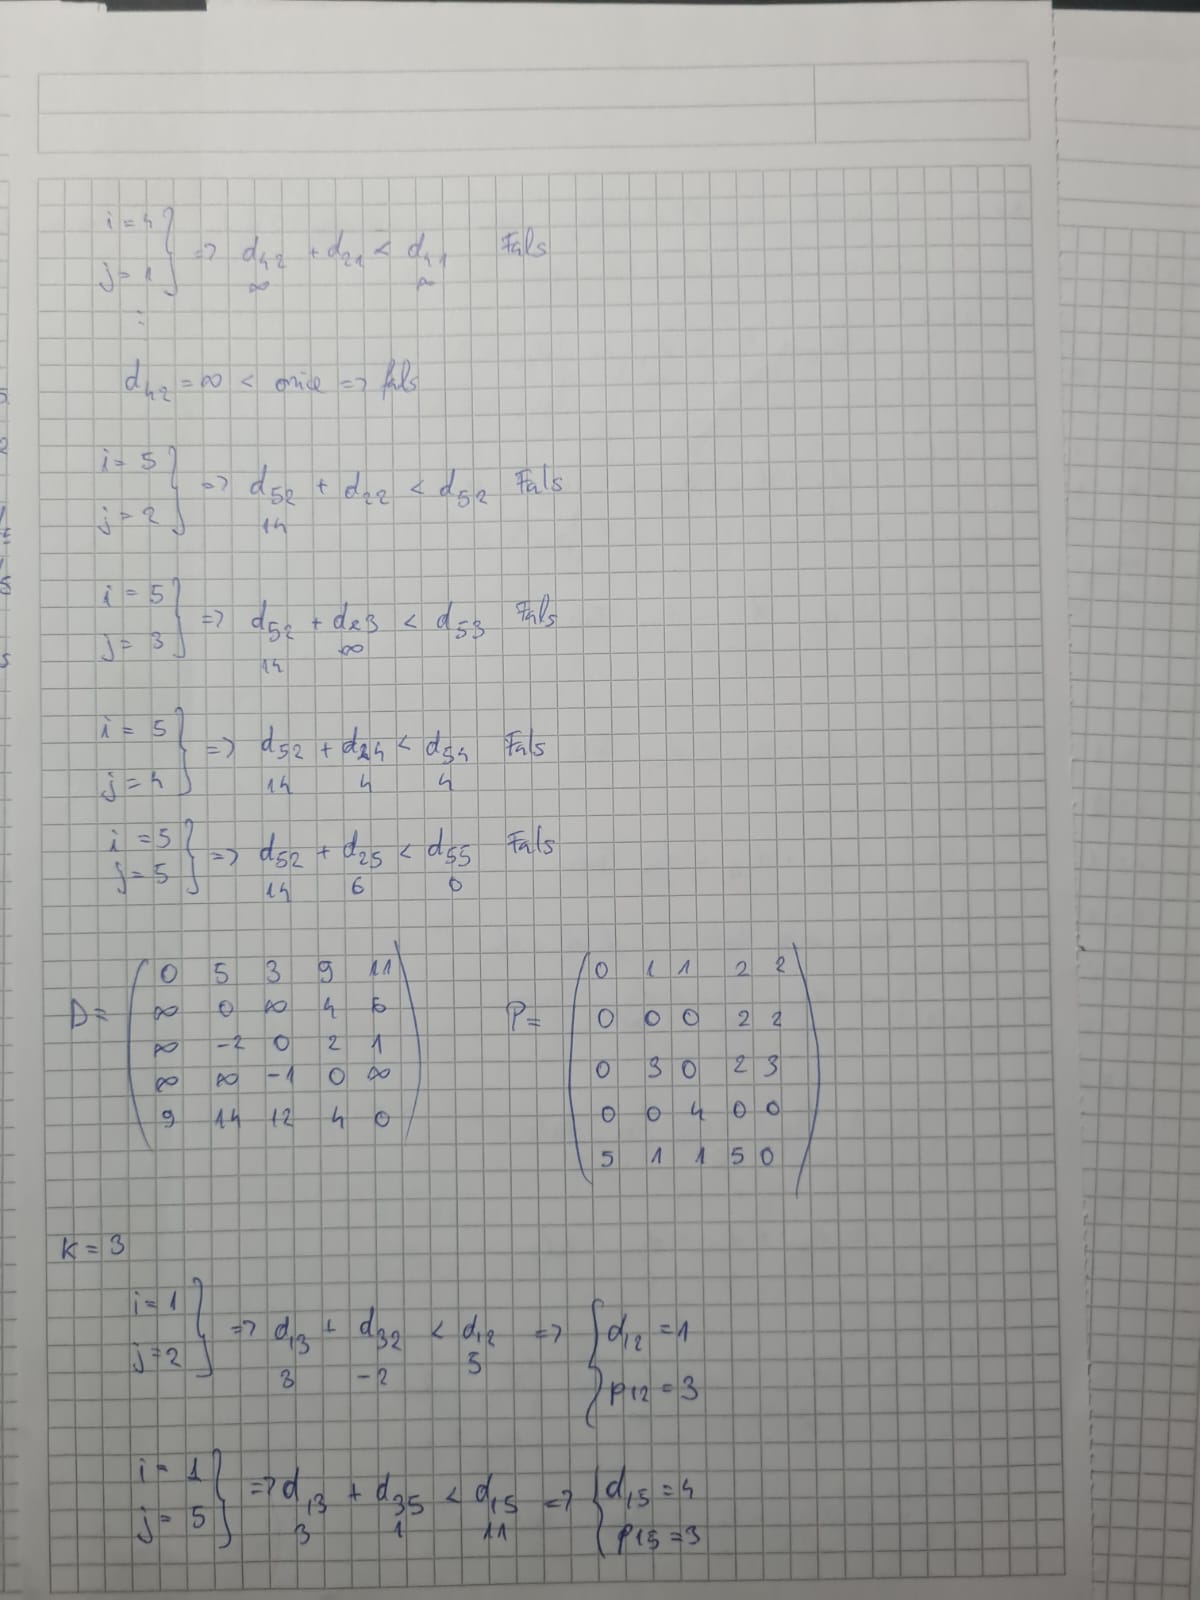 i = 4
j = 1 } => d42 + d21 < d41 Fals
∞ ∞
⋮
d42 = ∞ < orice => fals
i = 5
j = 2 } => d52 + d22 < d52 Fals
14
i = 5
j = 3 } => d52 + d23 < d53 Fals
14 ∞
i = 5
j = 4 } => d52 + d24 < d54 Fals
14 4 4
i = 5
j = 5 } => d52 + d25 < d55 Fals
14 6 0
D = ( 0 5 3 9 11
∞ 0 ∞ 4 6
∞ -2 0 2 1
∞ ∞ -1 0 ∞
9 14 12 4 0 )
P = ( 0 1 1 2 2
0 0 0 2 2
0 3 0 2 3
0 0 4 0 0
5 1 1 5 0 )
K = 3
i = 1
j = 2 } => d13 + d32 < d12 => { d12 = 1
3 -2 5
p12 = 3
i = 1
j = 5 } => d13 + d35 < d15 => { d15 = 4
3 1 11
p15 = 3